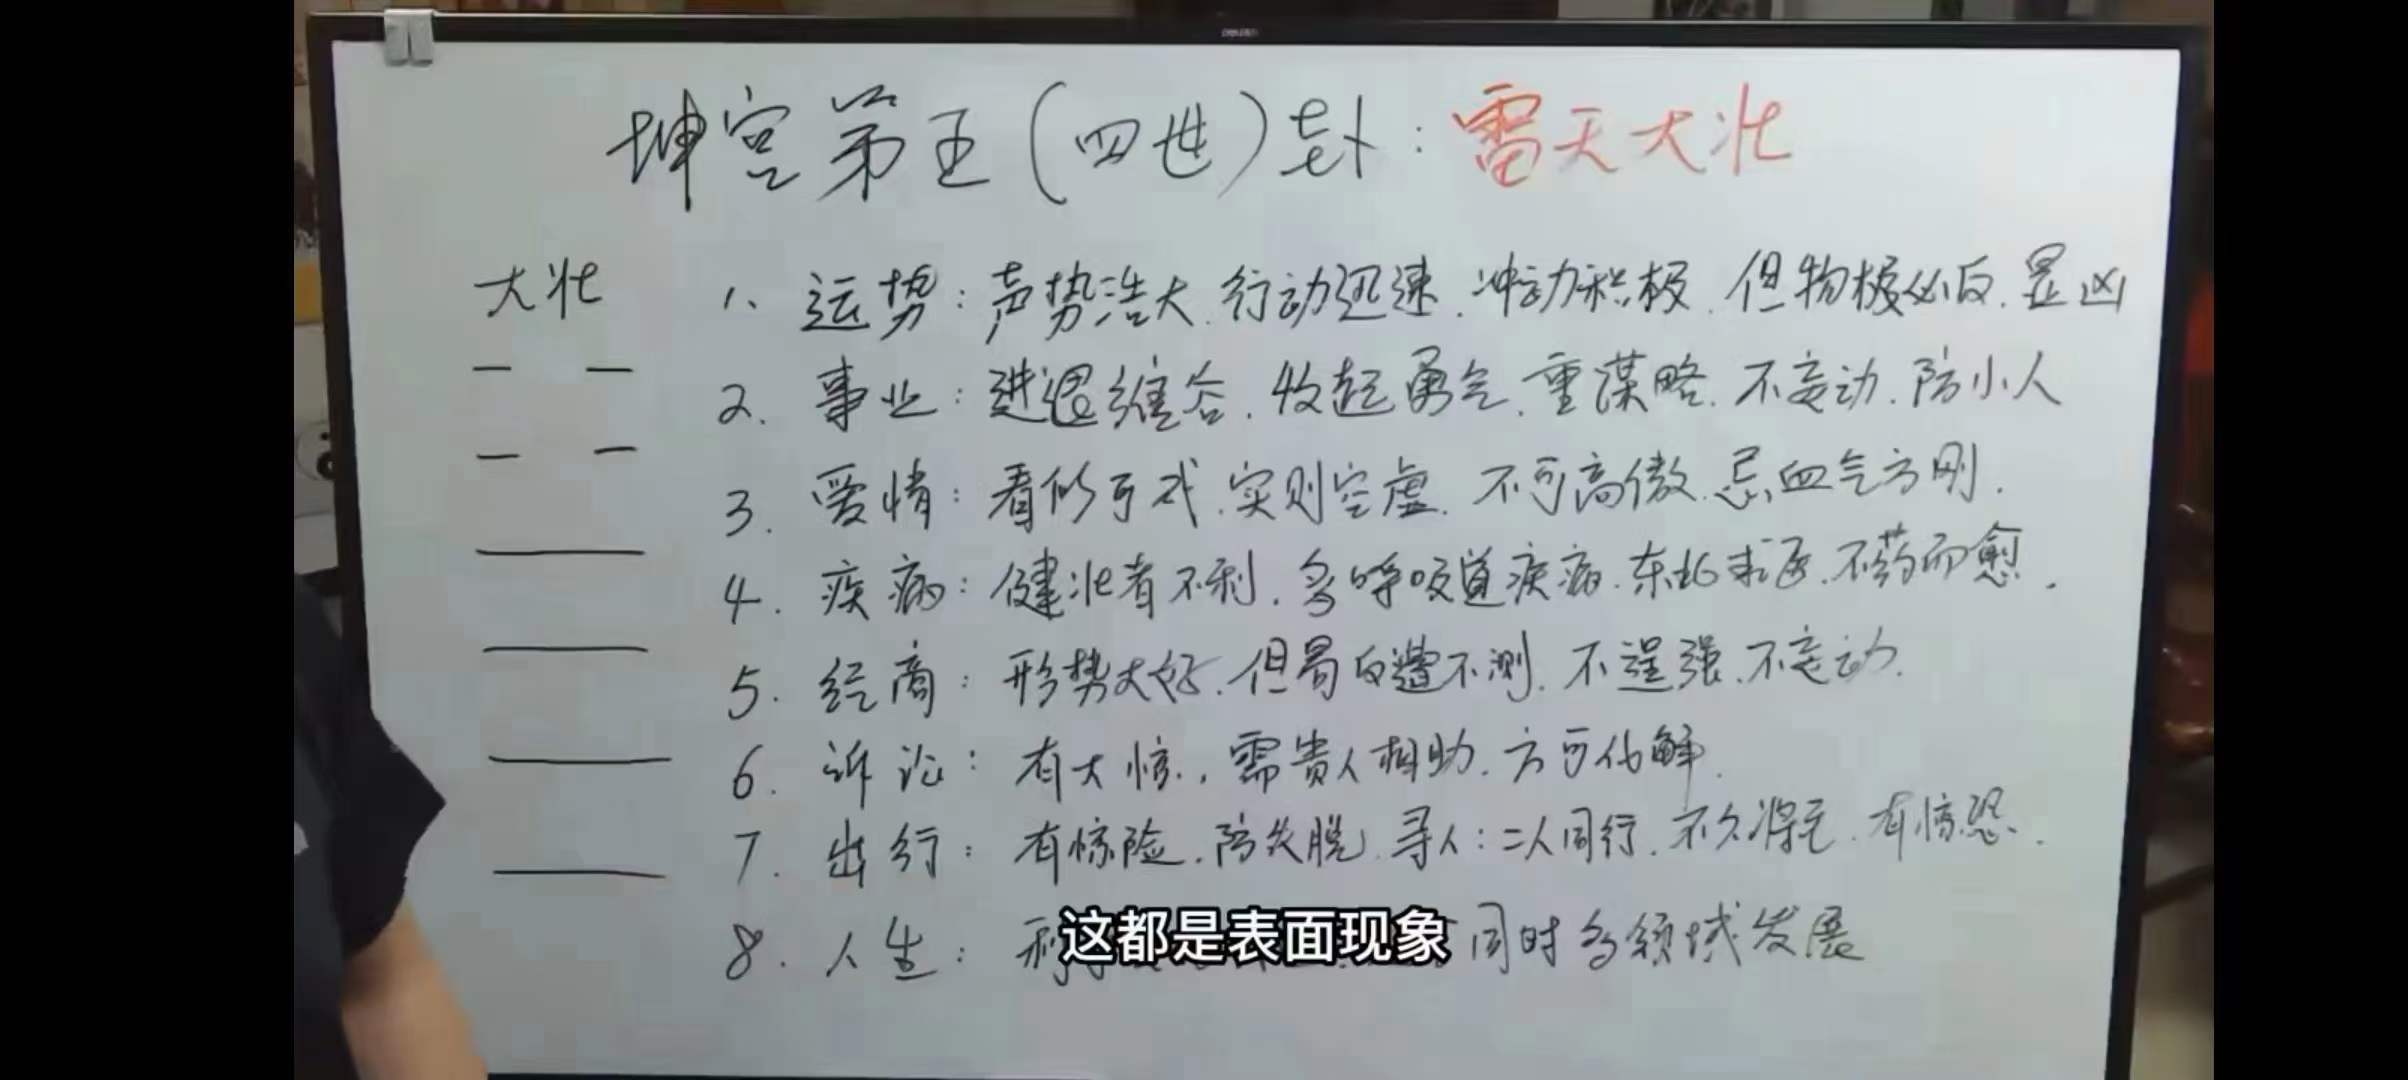 deli
坤宫第五(四世)卦:雷天大壮
大壮
1、运势:声势浩大.行动迅速.冲动积极.但物极必反.显凶
2.事业:进退维谷.收起勇气.重谋略.不妄动.防小人
3.爱情:看似可成.实则空虚.不可高傲.忌血气方刚.
4.疾病:健壮者不利.多呼吸道疾病.东北求医.不药而愈.
5.经商:形势大好.但易反遭不测.不逞强.不妄动.
6.诉讼:有大惊,需贵人相助.方可化解.
7.出行:有惊险.防失脱.寻人:二人同行.不久将至.有惊恐.
8.人生:利 同时多领域发展
这都是表面现象